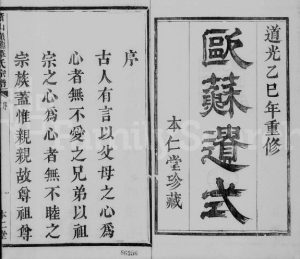 道光乙巳年重修
歐蘇遺式
本仁堂珍藏
序
古人有言以父母之心為
心者無不愛之兄弟以祖
宗之心為心者無不睦之
宗族蓋惟親親故尊祖尊
96856